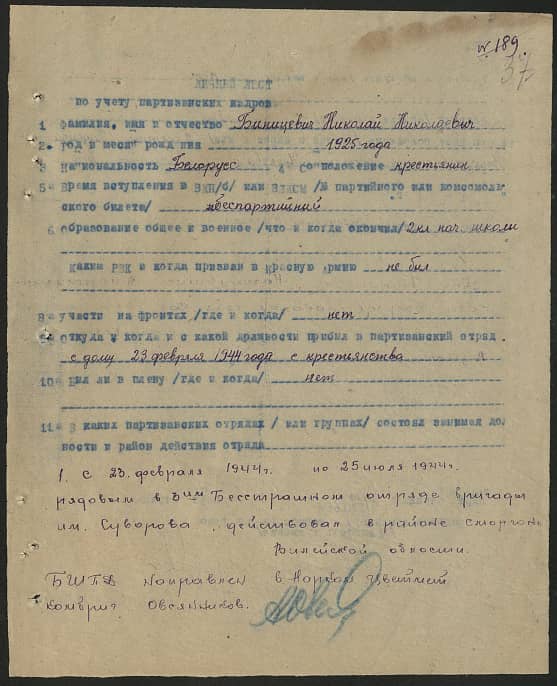 № 189
37
ЛИЧНЫЙ ЛИСТ
по учету партизанских кадров
1 Фамилия, имя и отчество Биницевич Николай Николаевич
2. год и месяц рождения 1925 года
3 Национальность Белорусс 4 Соцположение крестьянин
5 Время вступления в ВКП/б/ или ВЛКСМ /№ партийного или комсомоль
ского билета/ беспартийний
6 Образование общее и военное /что и когда окончил/ 2 кл нач. школи
Каким РВК и когда призван в Красную Армию не бил
8 участи на фронтах /где и когда/ нет
откуда когда и с какой должности прибыл в партизанский отряд
с дому 23 февраля 1944 года с крестьянства
10 Был ли в плену /где и когда/ нет
11 В каких партизанских отрядах /или группах/ состоял занимая дол
ности и район действия отряда
1. с 23. февраля 1944г. по 25 июля 1944г.
рядовым в 3им Бесстрашном отряде бригады
им. Суворова действовал в районе сморгонь
Вилейской области.
БШПД направлен в Нарком Цветмет
Комбриг Овсянников.